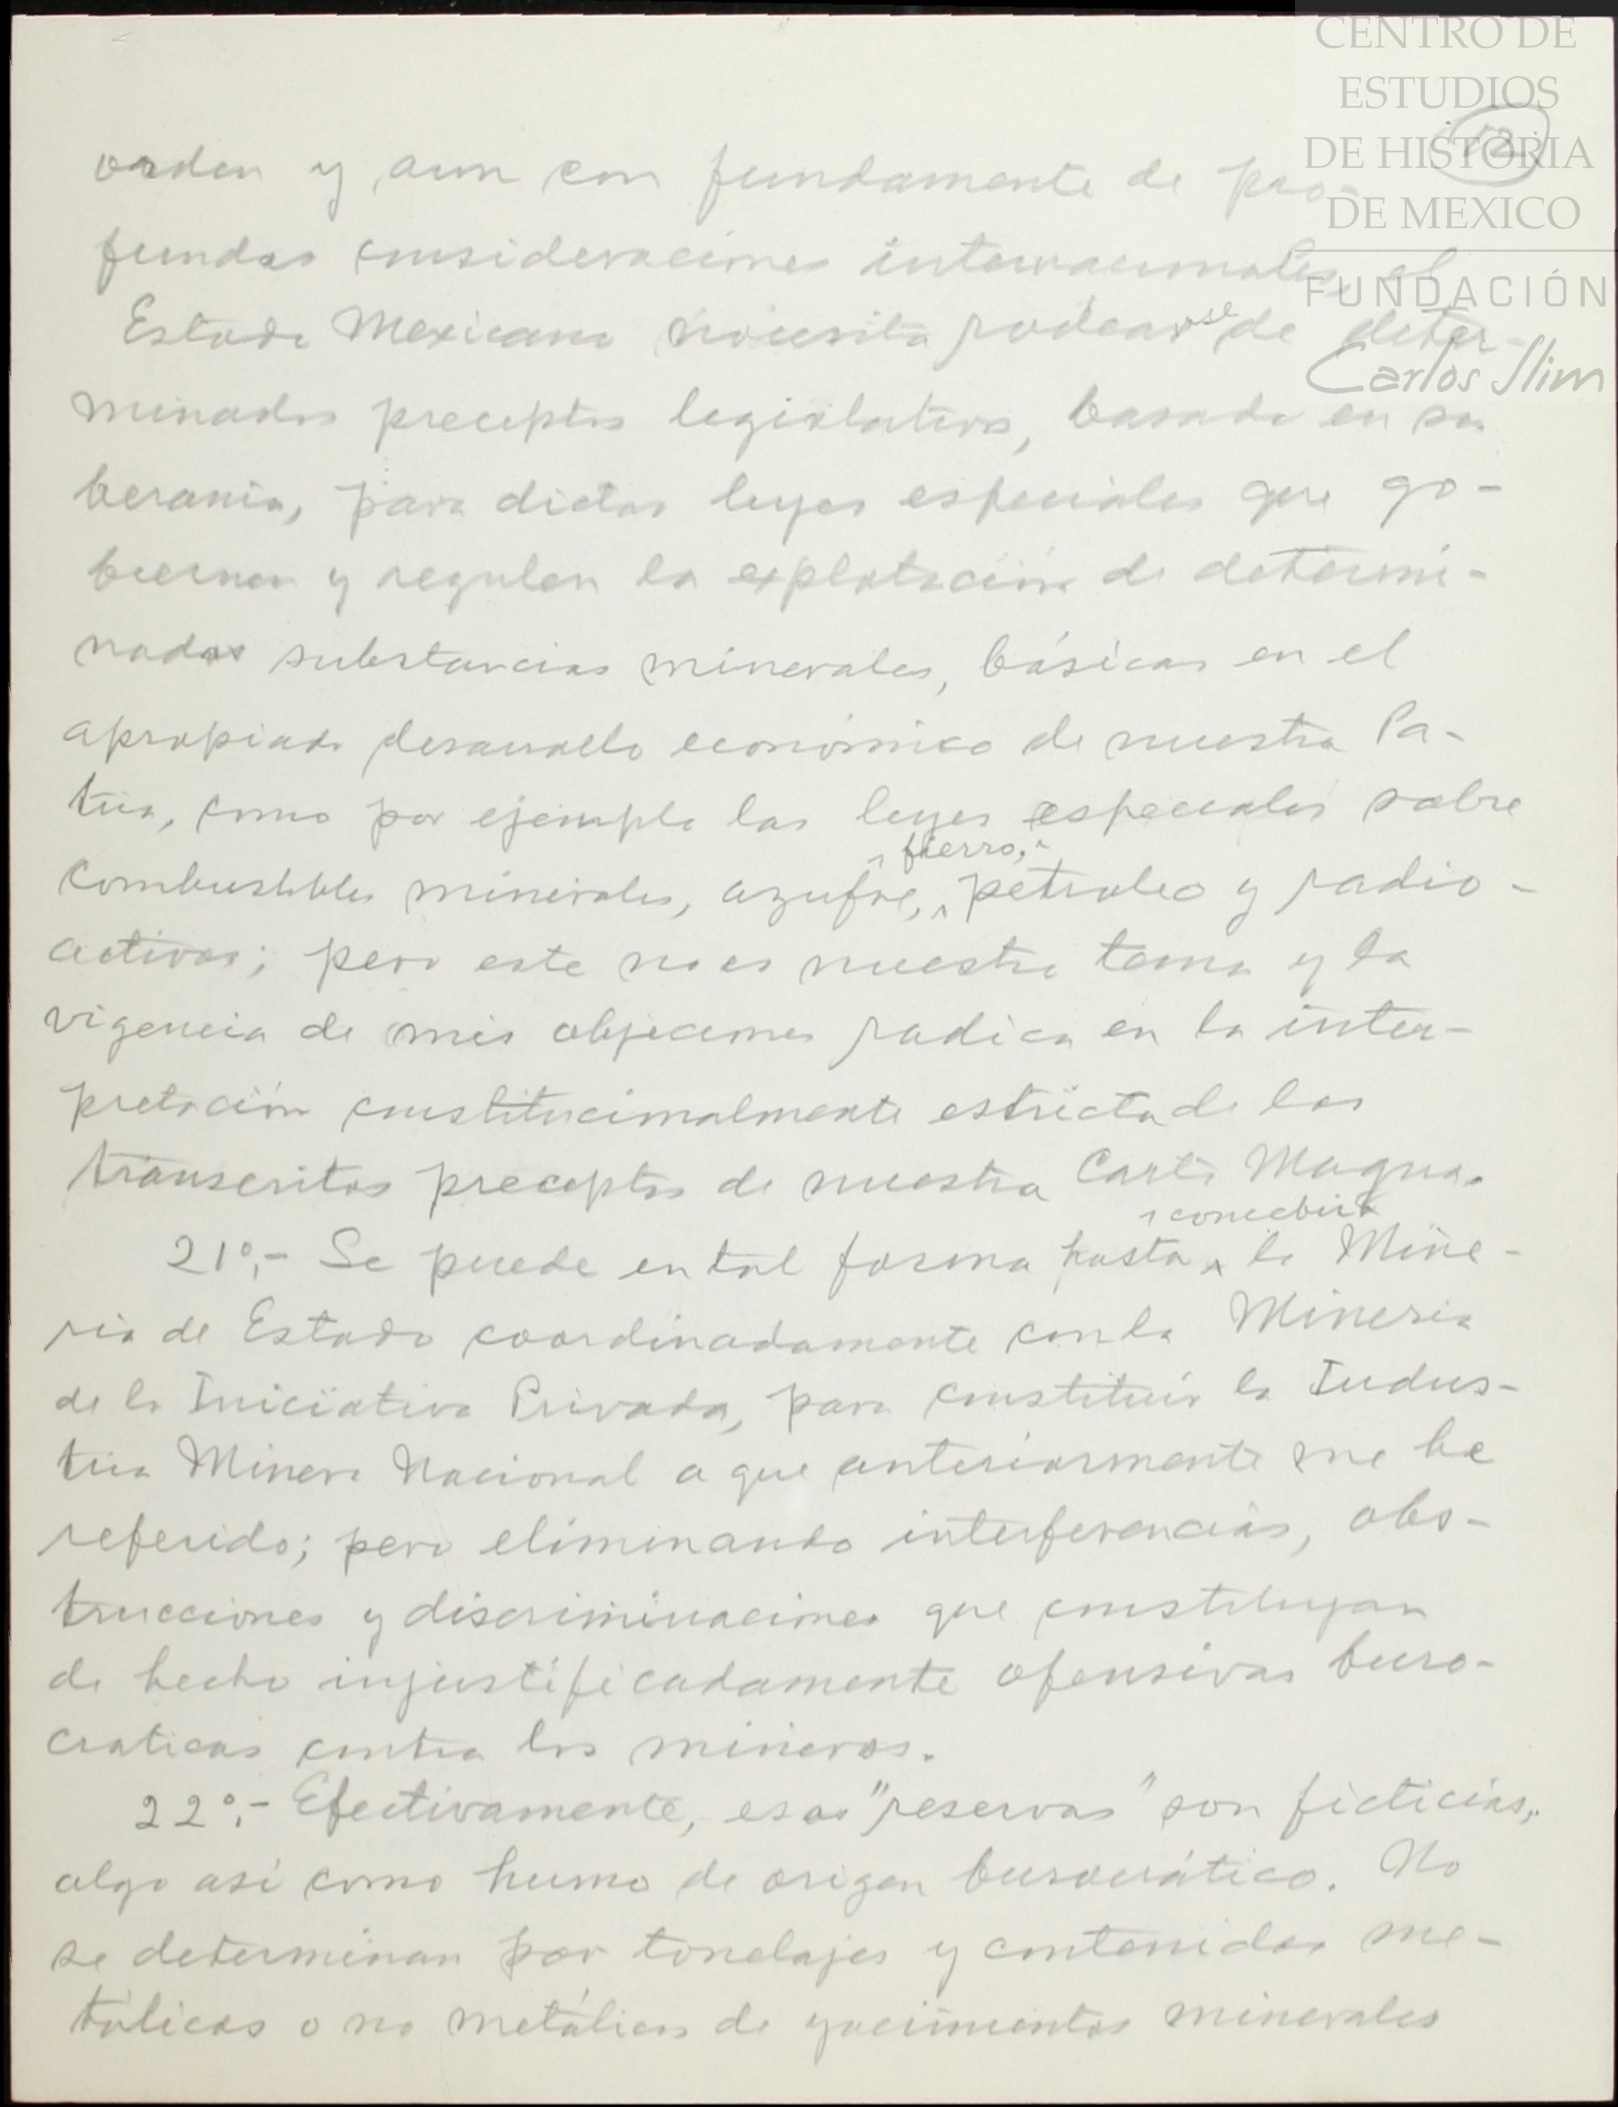 CENTRO DE
ESTUDIOS
DE HISTORIA
DE MEXICO
FUNDACIÓN
Carlos Slim
12
orden y aun con fundamente de pro-
fundas consideraciones internacionales, el
Estado Mexicano necesita rodearse de deter-
minados preceptos legislativos, basado en so
berania, para dictar leyes especiales que go-
biernen y regulen la explotación de determi-
nadas substancias minerales, básicas en el
apropiado desarrollo económico de nuestra Pa-
tria, como por ejemplo las leyes especiales sobre
fierro,
combustibles minerales, azufre, petroleo y radio-
activos; pero este no es nuestro tema y la
vigencia de mis objeciones radica en la inter-
pretación constitucionalmente estricta de los
transcritos preceptos de nuestra Carta Magna.
concebir
21º.- Se puede en tal forma hasta la Mine-
ria de Estado coordinadamente con la Mineria
de la Iniciativa Privada, para constituir la Indus-
tria Minera Nacional a que anteriormente me he
referido; pero eliminando interferencias, obs-
trucciones y discriminaciones que constituyan
de hecho injustificadamente ofensivas buro-
craticas contra los mineros.
22º.- Efectivamente, esas "reservas" son ficticias,
algo asi como humo de origen burocrático. No
se determinan por tonelajes y contenidos me-
tálicos o no metálicos de yacimientos minerales